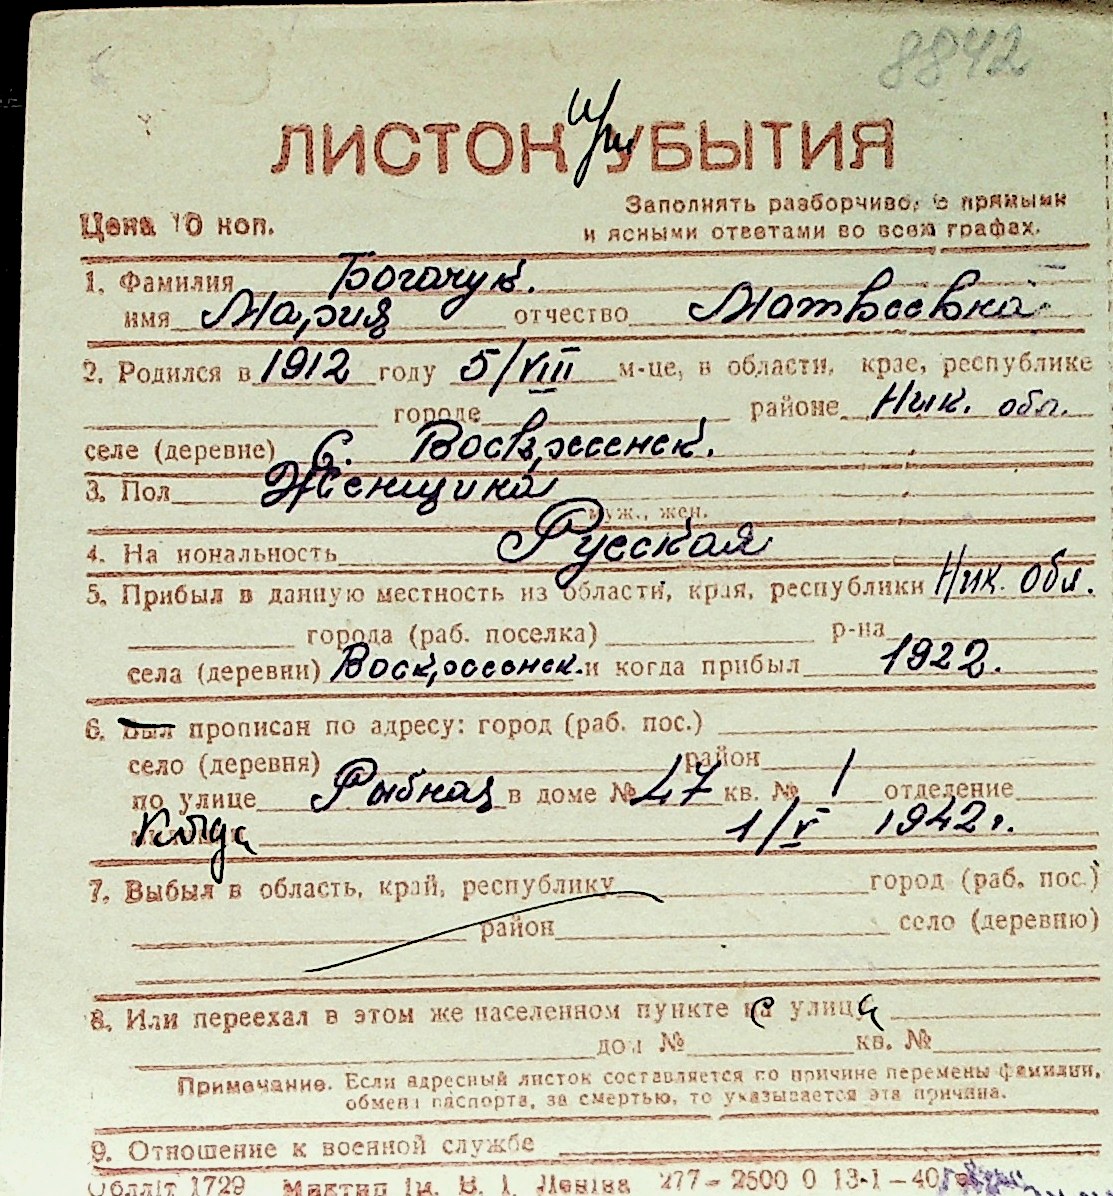 8842
ЛИСТОК при УБЫТИЯ
Заполнять разборчиво, с прямыми
Цена 10 коп.
и ясными ответами во всех графах.
1. Фамилия Богачук.
имя Мария отчество Матвеевна
2. Родился в 1912 году 5/VIII м-це, в области, крае, республике
городе районе Ник. обл.
селе (деревне) С. Воскресенск.
3. Пол Женщина
муж., жен.
4. На иональность Русская
5. Прибыл в данную местность из области, края, республики Ник. Обл.
города (раб. поселка) р-на
села (деревни) Воскресенск. и когда прибыл 1922.
6. Был прописан по адресу: город (раб. пос.)
село (деревня) район
по улице Рыбная в доме № 47 кв. № 1 отделение
Когда 1/V 1942 г.
7. Выбыл в область, край, республику город (раб. пос.)
район село (деревню)
8. Или переехал в этом же населенном пункте с улица
дом № кв. №
Примечание. Если адресный листок составляется по причине перемены фамилии,
обмена паспорта, за смертью, то указывается эта причина.
9. Отношение к военной службе
Облліт 1729 Миктип ім. В. І. Леніна 277—2500 0 13-1—40